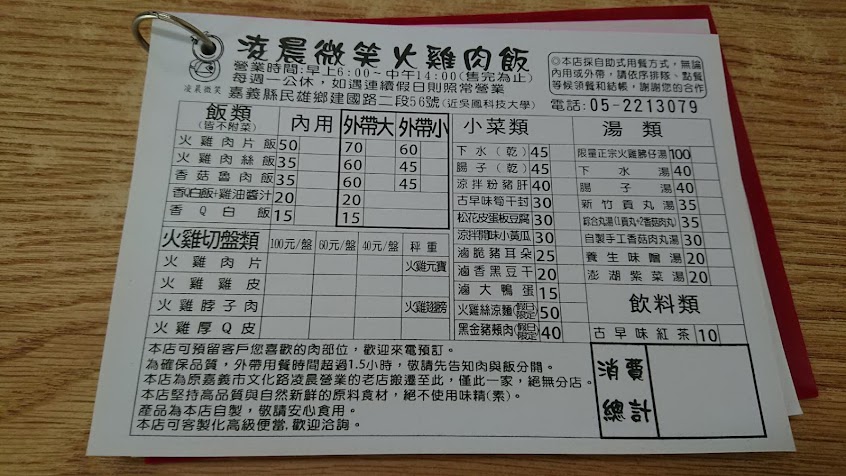 凌晨微笑火雞肉飯
凌晨微笑
營業時間:早上6:00~中午14:00(售完為止)
每週一公休，如遇連續假日則照常營業
嘉義縣民雄鄉建國路二段56號(近吳鳳科技大學)
◎本店採自助式用餐方式，無論
內用或外帶，請依序排隊、點餐
等候領餐和結帳，謝謝您的合作
電話:05-2213079
飯類 內用 外帶大 外帶小
(皆不附菜)
火雞肉片飯 50 70 60
火雞肉絲飯 35 60 45
香菇魯肉飯 35 60 45
香Q白飯+雞油醬汁 20 20
香Q白飯 15 15
火雞切盤類 100元/盤 60元/盤 40元/盤 秤重
火雞肉片 火雞元寶
火雞雞皮
火雞脖子肉 火雞翅膀
火雞厚Q皮
小菜類
下水(乾) 45
腸子(乾) 45
涼拌粉豬肝 40
古早味筍干封 30
松花皮蛋板豆腐 30
涼拌開味小黃瓜 30
滷脆豬耳朵 25
滷香黑豆干 20
滷大鴨蛋 15
火雞絲涼麵(假日限定) 50
黑金豬頰肉(假日限定) 40
湯類
限量正宗火雞胇仔湯 100
下水湯 40
腸子湯 40
新竹貢丸湯 35
綜合丸湯(1貢丸+2香菇肉丸) 35
自製手工香菇肉丸湯 30
養生味噌湯 20
澎湖紫菜湯 20
飲料類
古早味紅茶 10
消費
總計
本店可預留客戶您喜歡的肉部位，歡迎來電預訂。
為確保品質，外帶用餐時間超過1.5小時，敬請先告知肉與飯分開。
本店為原嘉義市文化路凌晨營業的老店搬遷至此，僅此一家，絕無分店。
本店堅持高品質與自然新鮮的原料食材，絕不使用味精(素)。
產品為本店自製，敬請安心食用。
本店可客製化高級便當,歡迎洽詢。